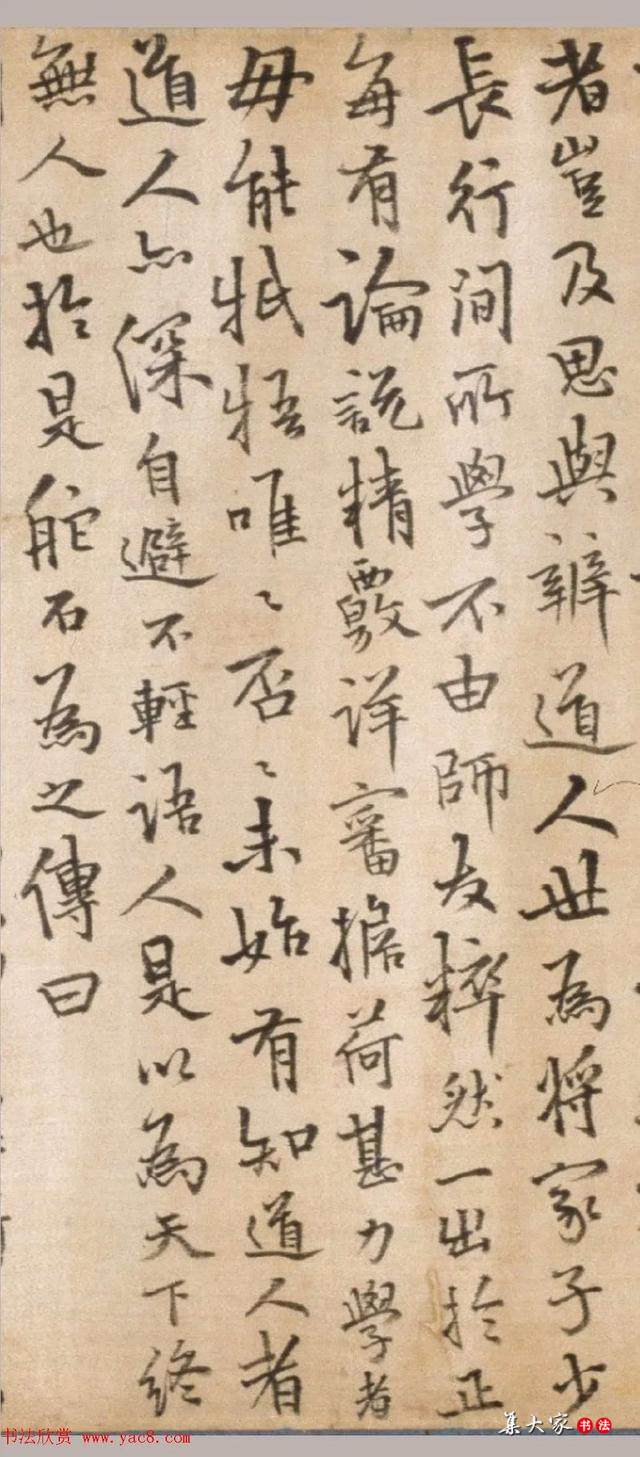 者豈及思與辯道人世為將家子少
長行間所學不由師友粹然一出於正
每有論說精覈詳審擔荷甚力學者
毋能牴牾唯〻否〻未始有知道人者
道人亦深自避不輕語人是以為天下終
無人也於是舵石為之傳曰
書法欣賞 www.yac8.com
集大家書法